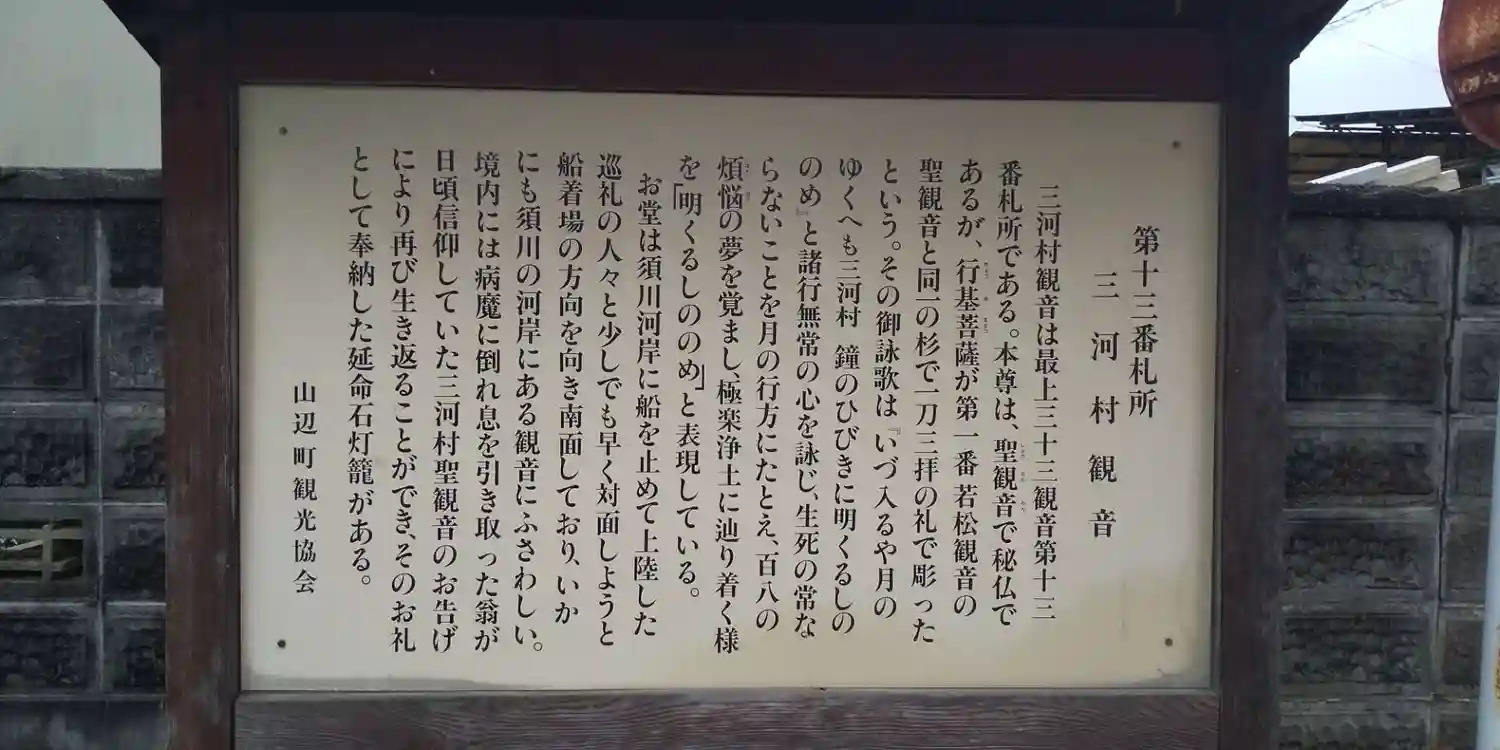 第十三番札所
三河村観音
三河村観音は最上三十三観音第十三
番札所である。本尊は、聖観音で秘仏で
あるが、行基菩薩が第一番若松観音の
聖観音と同一の杉で一刀三拝の礼で彫った
という。その御詠歌は『いづ入るや月の
ゆくへも三河村 鐘のひびきに明くるしの
のめ』と諸行無常の心を詠じ、生死の常な
らないことを月の行方にたとえ、百八の
煩悩の夢を覚まし、極楽浄土に辿り着く様
を「明くるしののめ」と表現している。
お堂は須川河岸に船を止めて上陸した
巡礼の人々と少しでも早く対面しようと
船着場の方向を向き南面しており、いか
にも須川の河岸にある観音にふさわしい。
境内には病魔に倒れ息を引き取った翁が
日頃信仰していた三河村聖観音のお告げ
により再び生き返ることができ、そのお礼
として奉納した延命石灯籠がある。
山辺町観光協会